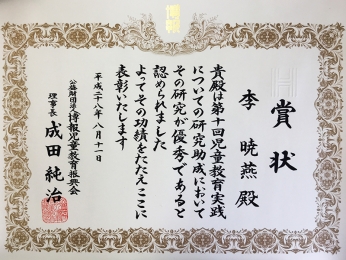 博報
賞状
李 暁燕 殿
貴殿は第十回児童教育実践
についての研究助成において
その研究が優秀であると
認められました
よってその功績をたたえここに
表彰いたします
平成二十八年八月十一日
公益財団法人 博報児童教育振興会
理事長 成田純治